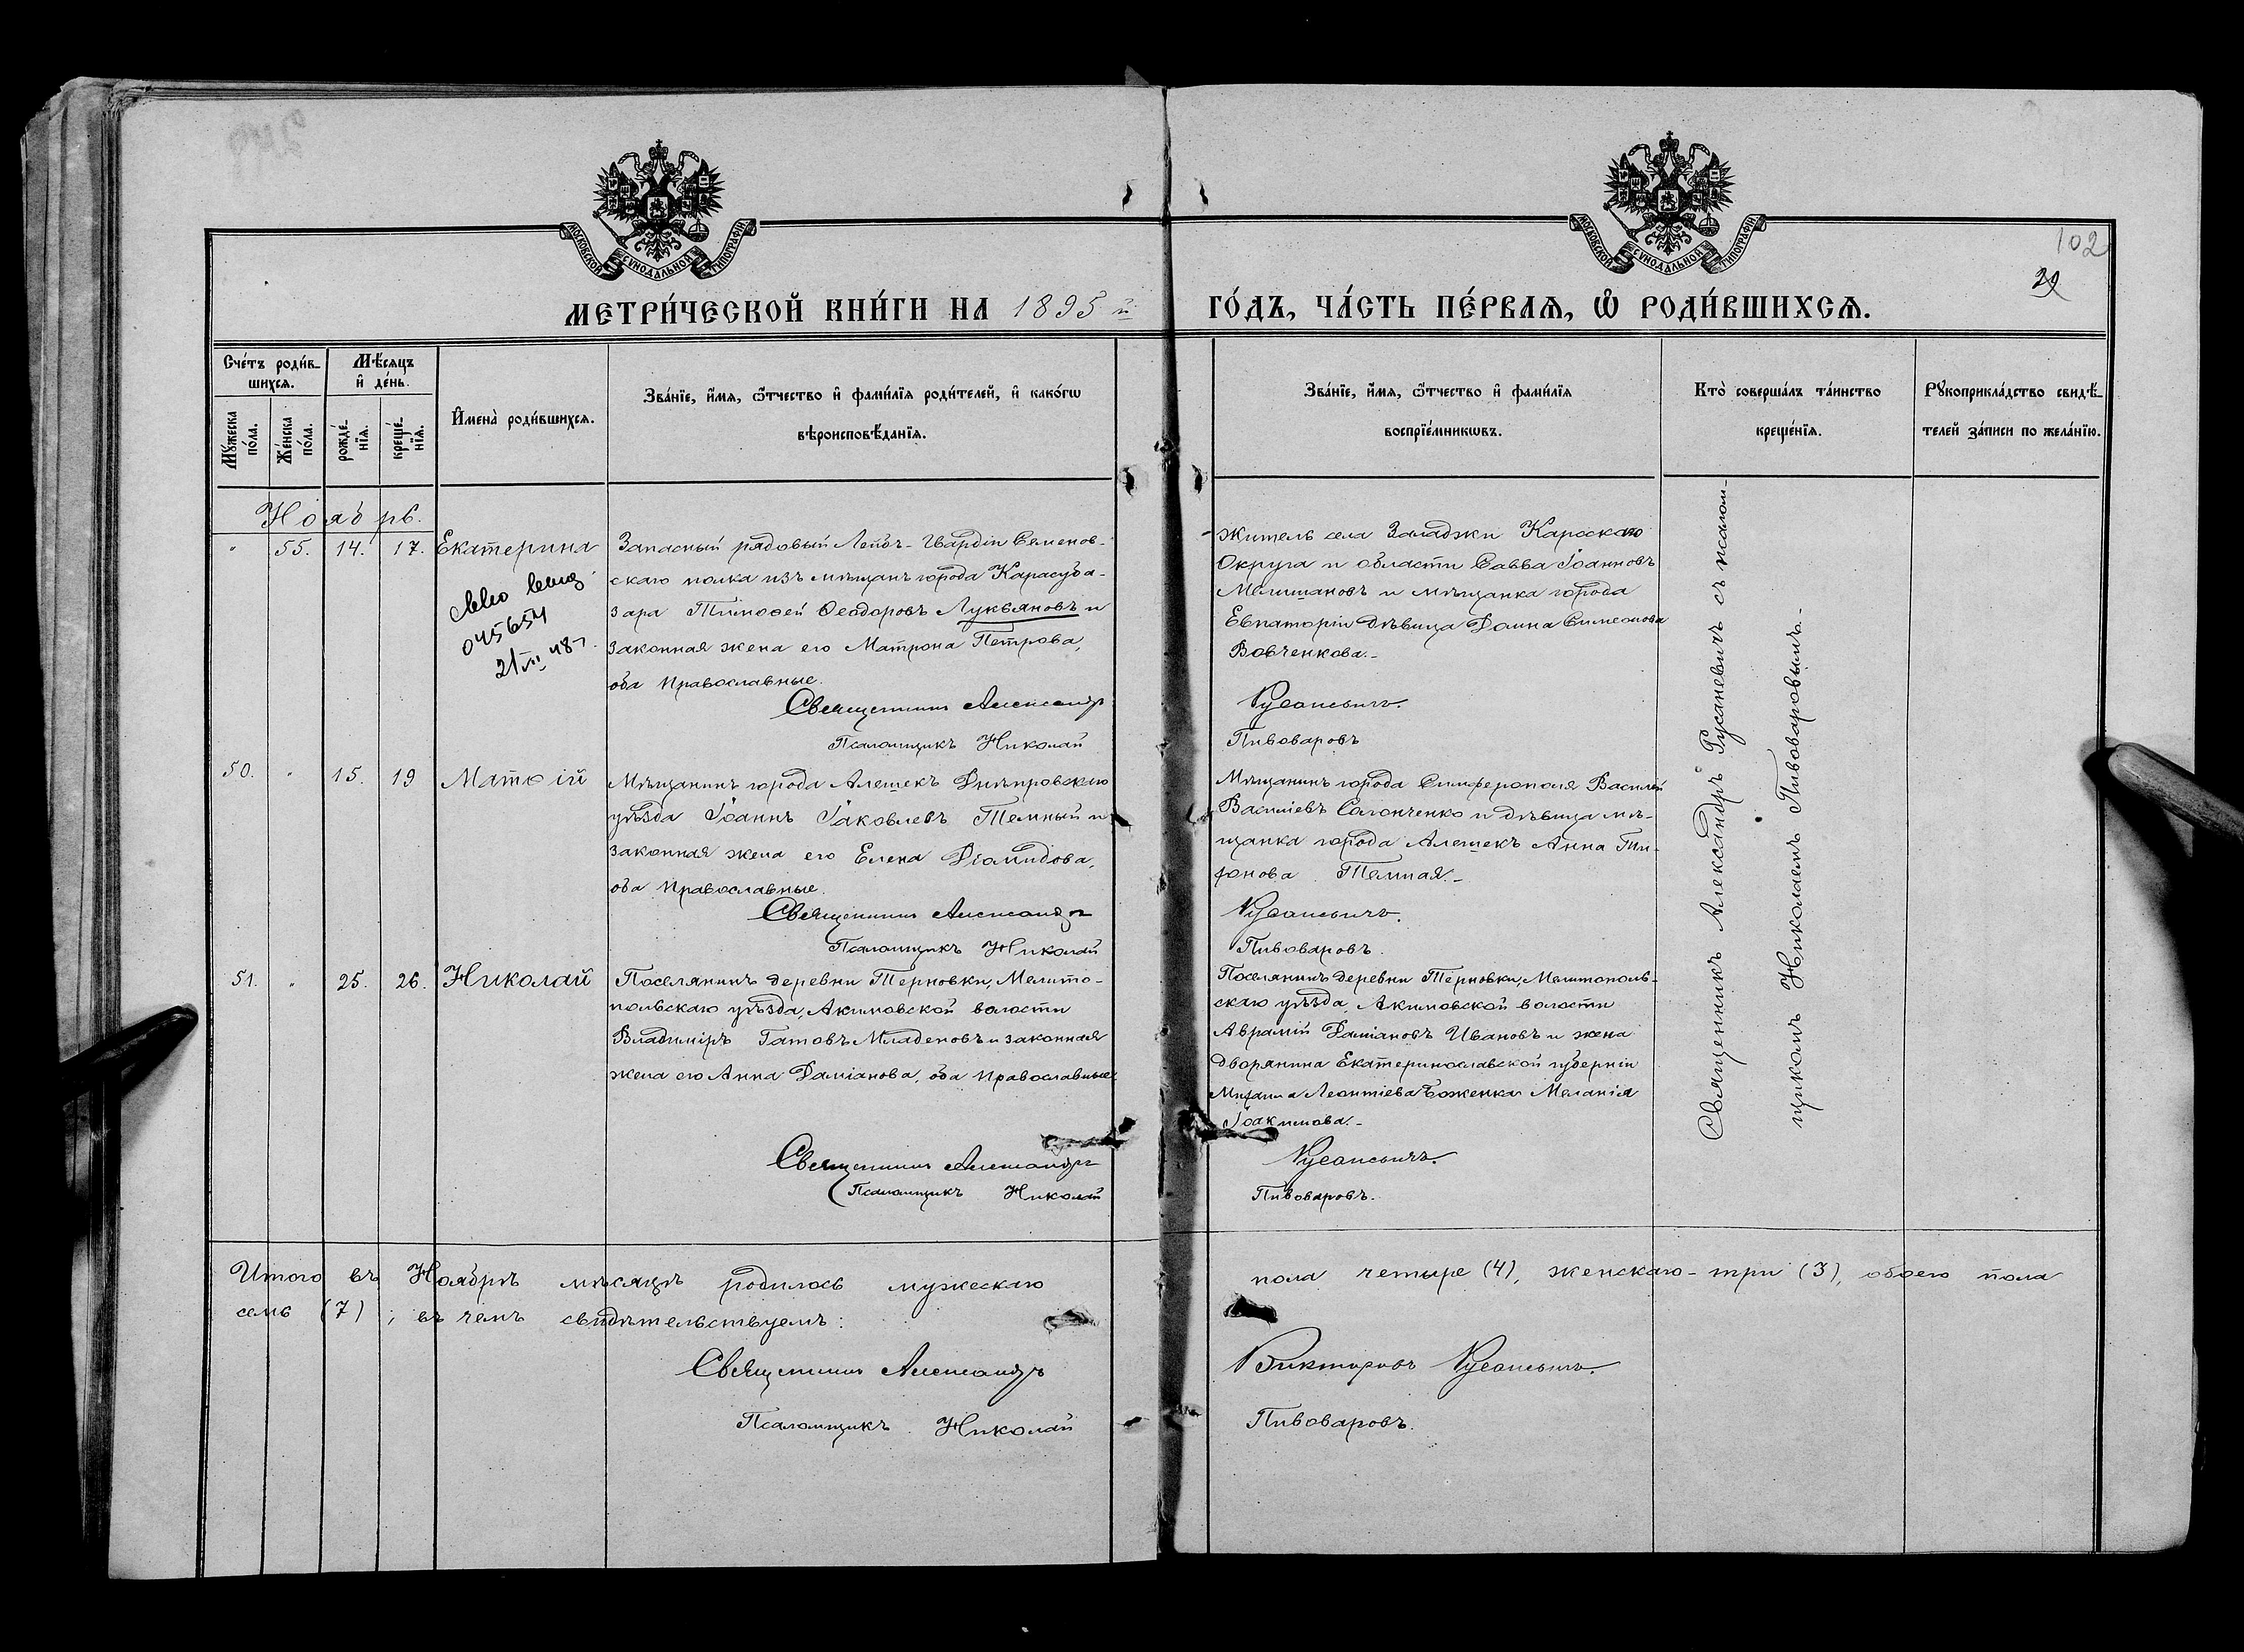 МОСКОВСКОЙ СѴНОДАЛЬНОЙ ТИПОГРАФІИ
МОСКОВСКОЙ СѴНОДАЛЬНОЙ ТИПОГРАФІИ
102
29
МЕТРИ́ЧЕСКОЙ КНИ́ГИ НА 1895 й
ГО́ДЪ, ЧА́СТЬ ПЕ́РВАѦ, Ѽ РОДИ́ВШИХСѦ.
Сче́тъ роди́в-
шихсѧ.
Мѣ́сѧцъ
и҆ де́нь.
Мꙋ́жеска
по́ла.
Же́нска
по́ла.
рожде́-
нїѧ.
креще́-
нїѧ.
И҆мена̀ роди́вшихсѧ.
Зва́нїе, и҆́мѧ, ѻ҆́тчество и҆ фами́лїѧ роди́телей, и҆ како́гѡ
вѣроисповѣ́данїѧ.
Зва́нїе, и҆́мѧ, ѻ҆́тчество и҆ фами́лїѧ
воспрїе́мникѡвъ.
Кто̀ соверша́лъ та́инство
креще́нїѧ.
Рꙋкоприкла́дство свидѣ́-
телей за́писи по жела́нїю.
Ноябрь.
" 55. 14. 17. Екатерина
045654
21/VII 48 г.
Запасный рядовый Лейбъ-Гвардіи Семенов-
скаго полка изъ мѣщанъ города Карасуба-
зара Тимоѳей Ѳеодоровъ Лукьяновъ и
законная жена его Матрона Петрова,
оба православные.
Священникъ Александръ
Псаломщикъ Николай
житель села Заладжи Карсскаго
Округа и области Савва Іоанновъ
Мелишановъ и мѣщанка города
Евпаторіи дѣвица Домна Симеонова
Вовченкова.-
Русаневичъ.
Пивоваровъ
50. " 15. 19 Матѳій
Мѣщанинъ города Алешекъ Днѣпровскаго
уѣзда Іоаннъ Іаковлевъ Темный и
законная жена его Елена Діомидова,
оба православные.
Священникъ Александръ
Псаломщикъ Николай
Мѣщанинъ города Симферополя Василій
Василіевъ Сагонченко и дѣвица мѣ-
щанка города Алешекъ Анна
Темная.-
Русаневичъ.
Пивоваровъ.
51. " 25. 26. Николай
Поселянинъ деревни Терновки, Мелито-
польскаго уѣзда, Акимовской волости
Владиміръ Гатовъ Младеновъ и законная
жена его Анна Даміанова, оба православные.
Священникъ Александръ
Псаломщикъ Николай
Поселянинъ деревни Терновки, Мелитополь-
скаго уѣзда, Акимовской волости
Аврамій Даміановъ Ивановъ и жена
дворянина Екатеринославской губерніи
Михаила Леонтіева Боженка Меланія
Іоакимова.-
Русаневичъ.
Пивоваровъ.
Священникъ Александръ Русаневичъ съ псалом-
щикомъ Николаемъ Пивоваровымъ.-
Итого въ Ноябрѣ мѣсяцѣ родилось мужескаго
пола четыре (4), женскаго-три (3), обоего пола
семь (7); въ чемъ свидѣтельствуемъ:
Священникъ Александръ
Викторовъ Русаневичъ.
Псаломщикъ Николай
Пивоваровъ.